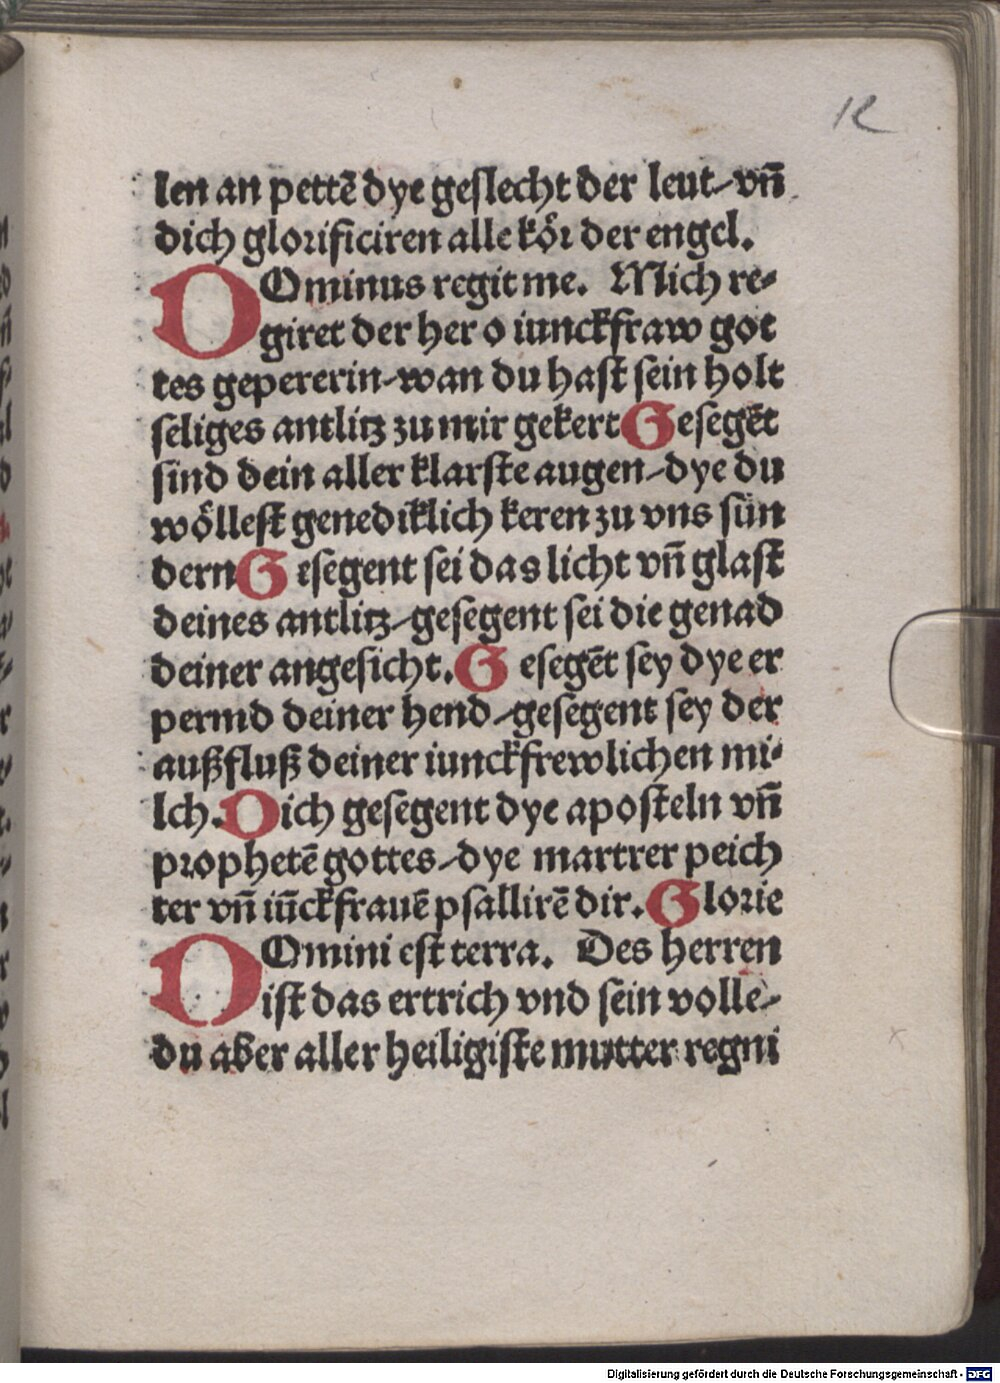 12
len an pettē dye geslecht der leut-vn̄
dich glorificiren alle kör der engel.
DOminus regit me. Mich re-
giret der her o iunckfraw got
tes gepererin-wan du hast sein holt
seliges antlitz zu mir gekert Gesegēt
sind dein aller klarste augen-dye du
wöllest genediklich keren zu vns sün
dern Gesegent sei das licht vn̄ glast
deines antlitz-gesegent sei die genad
deiner angesicht. Gesegēt sey dye er
permd deiner hend-gesegent sey der
außfluß deiner iunckfrewlichen mi-
lch. Dich gesegent dye aposteln vn̄
prophetē gottes-dye martrer peich
ter vn̄ iūckfrauē psallirē dir. Glorie
DOmini est terra. Des herren
ist das ertrich vnd sein volle-
du aber aller heiligiste mutter regni
Digitalisierung gefördert durch die Deutsche Forschungsgemeinschaft - DFG